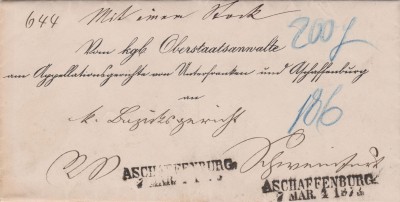 644 Mit einem Stock
Vom kgb Oberstaatsanwalte 200 g
am Appellationsgerichte von Unterfranken und Aschaffenburg
an 186
k. Bezirksgericht
Schweinfurt
ASCHAFFENBURG
ASCHAFFENBURG
7 MAR.